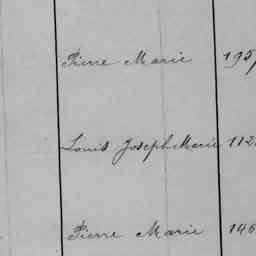 Pierre Marie 195
Louis Joseph Marie 112
Pierre Marie 146